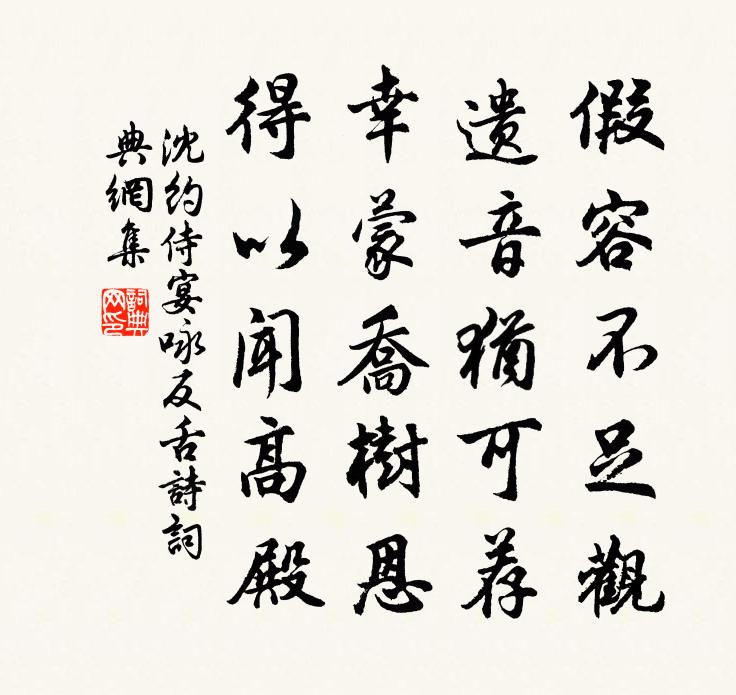 假容不足觀
遺音猶可荐
幸蒙喬樹恩
得以聞高殿
沈約侍宴咏反舌詩詞
典網集
詞典
网印